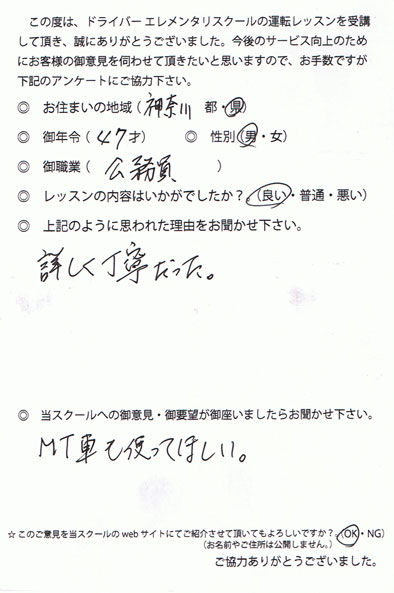 この度は、ドライバー エレメンタリスクールの運転レッスンを受講
して頂き、誠にありがとうございました。今後のサービス向上のため
にお客様の御意見を伺わせて頂きたいと思いますので、お手数ですが
下記のアンケートにご協力下さい。
◎ お住まいの地域（神奈川 都・県）
◎ 御年令（47才） ◎ 性別（男・女）
◎ 御職業（公務員）
◎ レッスンの内容はいかがでしたか？（良い・普通・悪い）
◎ 上記のように思われた理由をお聞かせ下さい。
詳しく丁寧だった。
◎ 当スクールへの御意見・御要望が御座いましたらお聞かせ下さい。
MT車も使ってほしい。
☆このご意見を当スクールの web サイトにてご紹介させて頂いてもよろしいですか？（OK・NG）
（お名前やご住所は公開しません。）
ご協力ありがとうございました。